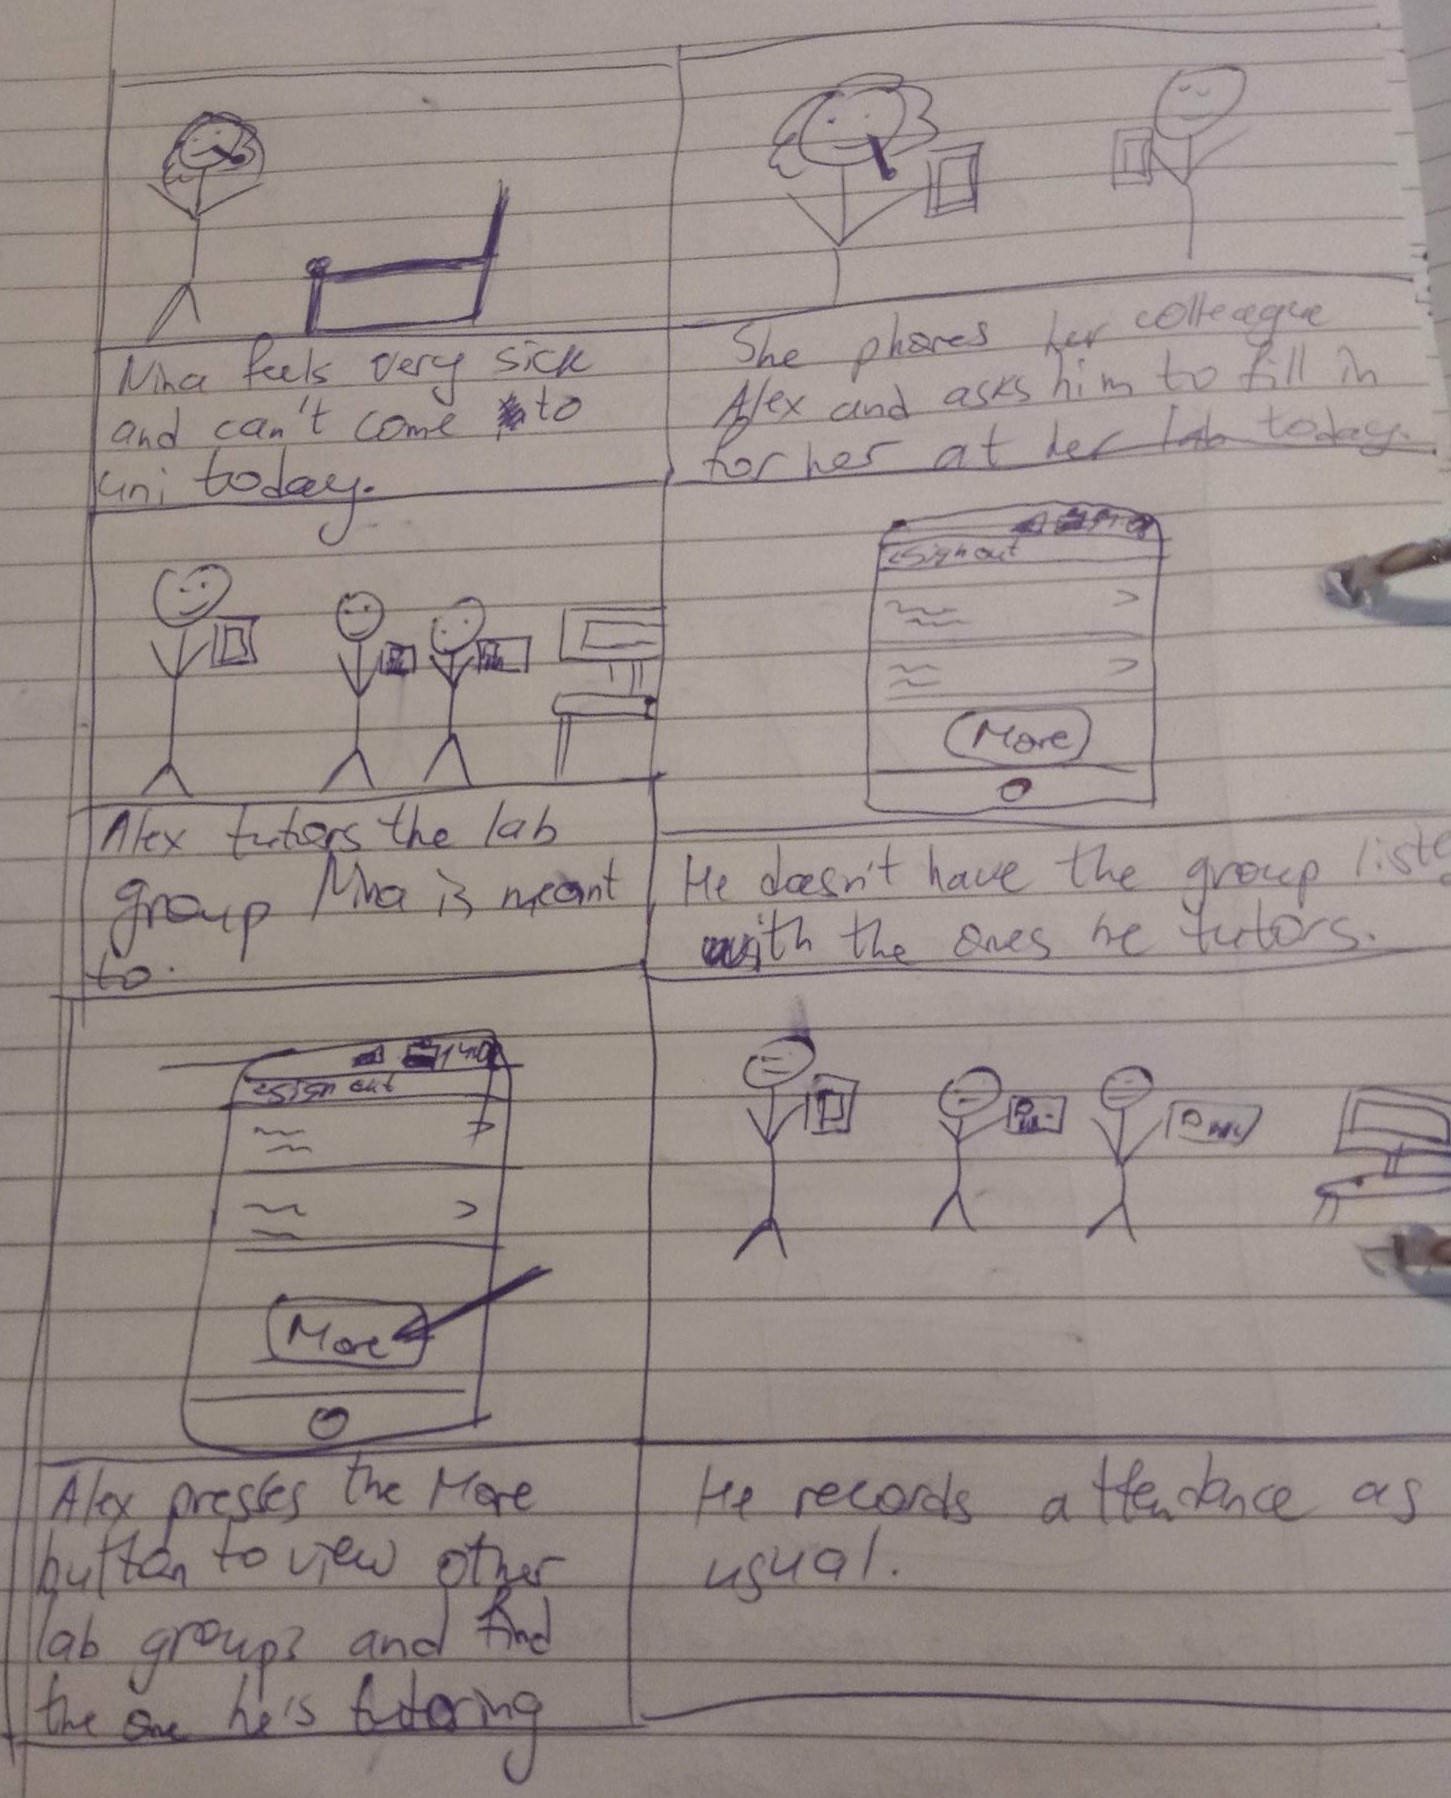 Nina feels very sick
and can't come to
uni today.
She phones her colleague
Alex and asks him to fill in
for her at her lab today.
Alex tutors the lab
group Nina is meant
to.
<Sign out
More
He doesn't have the group listed
with the ones he tutors.
<Sign out
More
Alex presses the More
button to view other
lab groups and find
the one he's tutoring
He records attendance as
usual.